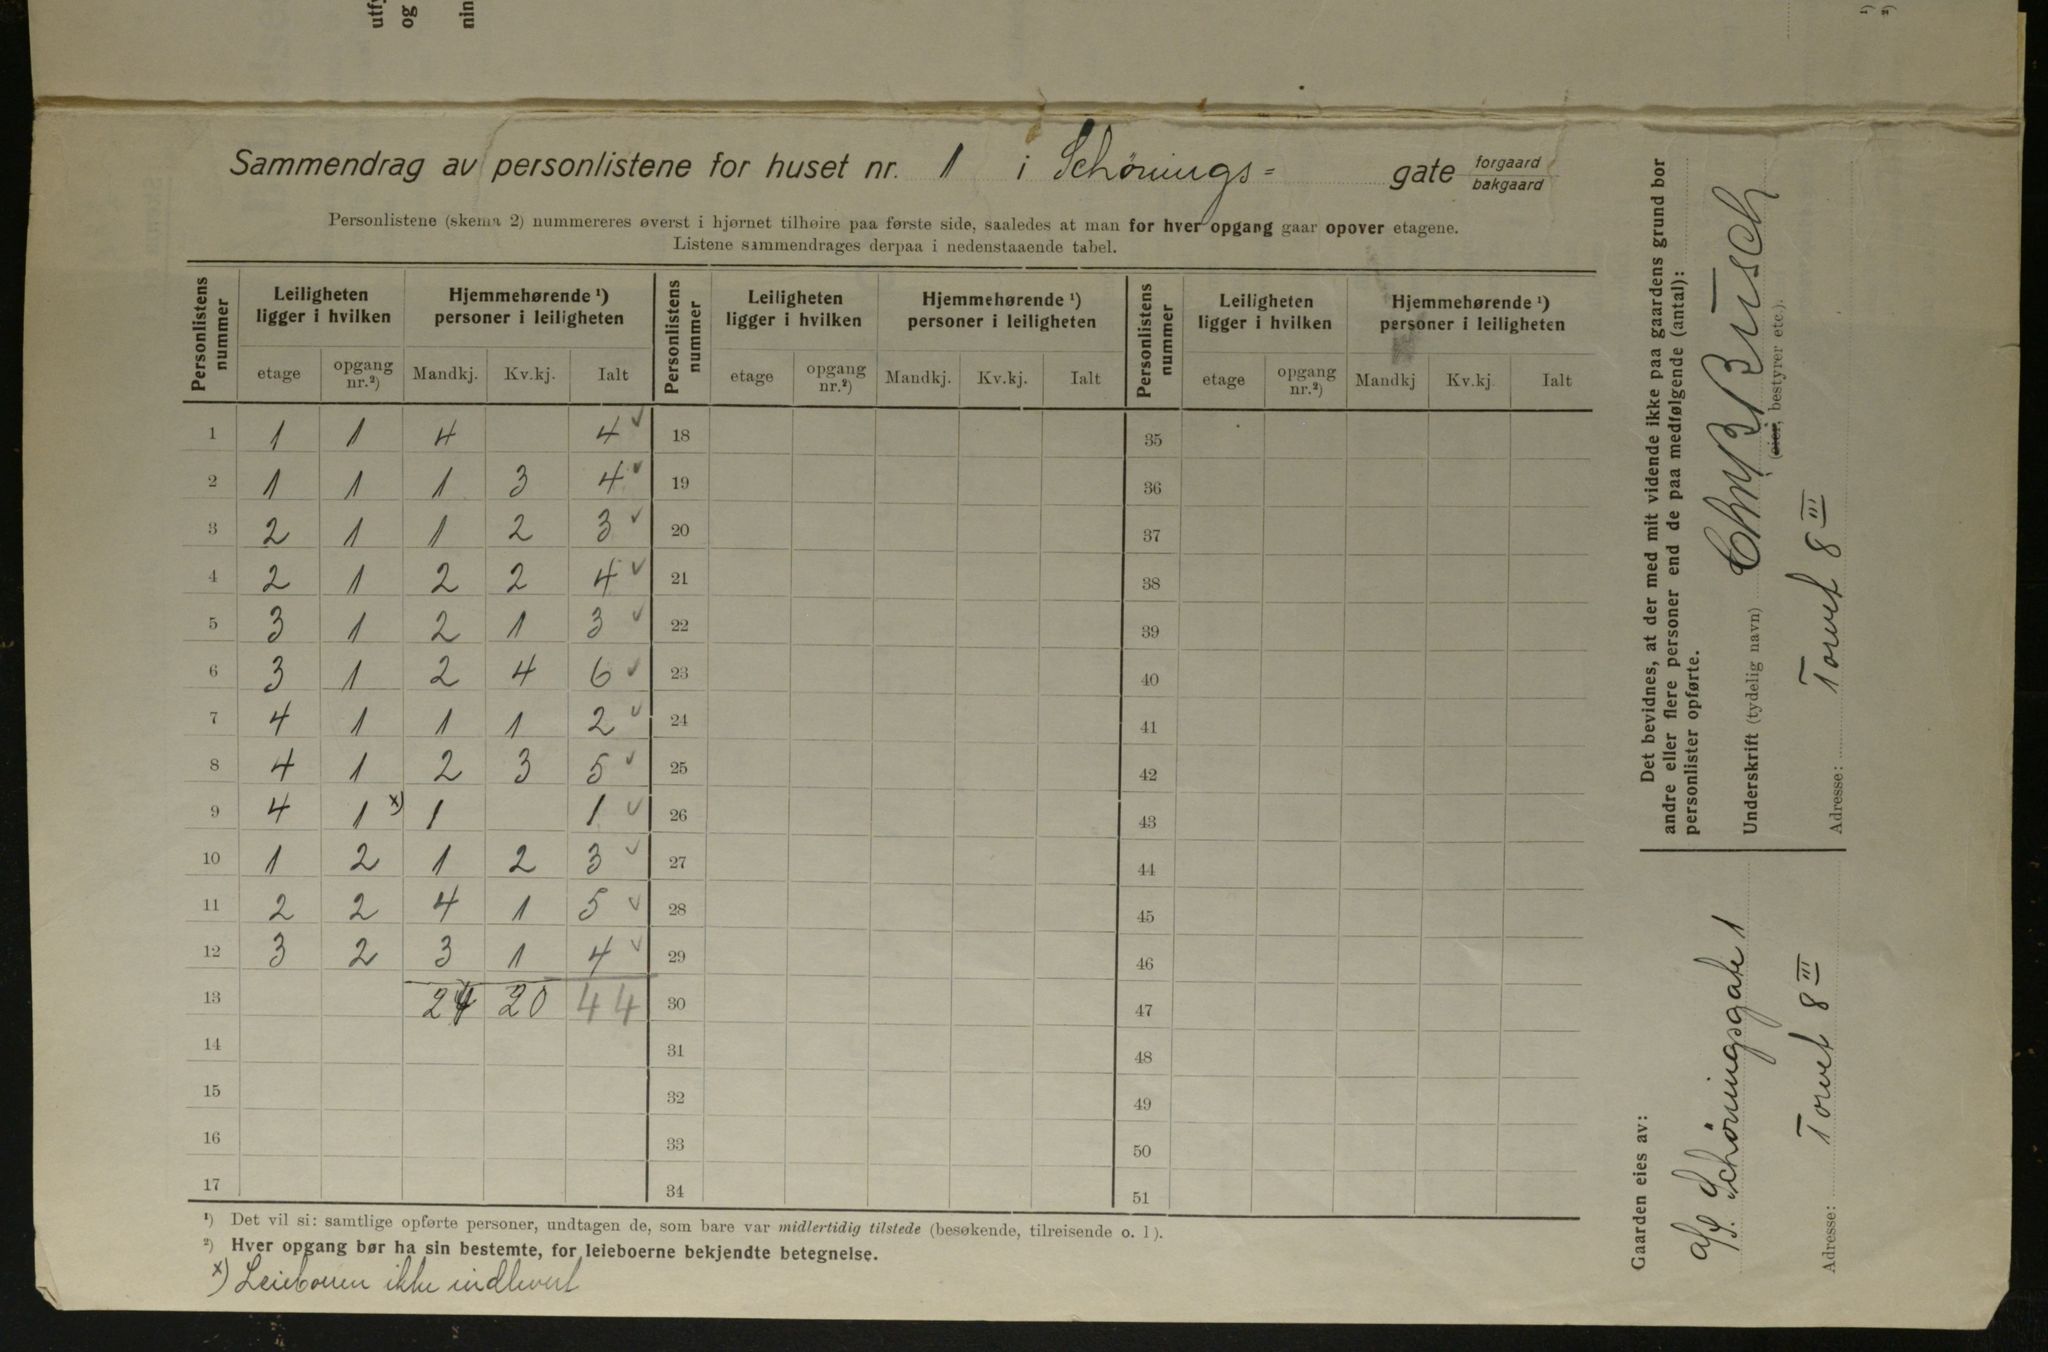 utfy
og
nin
¹)
²)
Sammendrag av personlistene for huset nr. 1 i Schønings= gate forgaard bakgaard
Personlistene (skema 2) nummereres øverst i hjørnet tilhøire paa første side, saaledes at man for hver opgang gaar opover etagene.
Listene sammendrages derpaa i nedenstaaende tabel.
Personlistens nummer | Leiligheten ligger i hvilken | Hjemmehørende ¹) personer i leiligheten | Personlistens nummer | Leiligheten ligger i hvilken | Hjemmehørende ¹) personer i leiligheten | Personlistens nummer | Leiligheten ligger i hvilken | Hjemmehørende ¹) personer i leiligheten
etage | opgang nr.²) | Mandkj. | Kv.kj. | Ialt | etage | opgang nr.²) | Mandkj. | Kv.kj. | Ialt | etage | opgang nr.²) | Mandkj | Kv.kj. | Ialt
1 | 1 | 1 | 4 | | 4 ✓ | 18 | 35
2 | 1 | 1 | 1 | 3 | 4 ✓ | 19 | 36
3 | 2 | 1 | 1 | 2 | 3 ✓ | 20 | 37
4 | 2 | 1 | 2 | 2 | 4 ✓ | 21 | 38
5 | 3 | 1 | 2 | 1 | 3 ✓ | 22 | 39
6 | 3 | 1 | 2 | 4 | 6 ✓ | 23 | 40
7 | 4 | 1 | 1 | 1 | 2 ✓ | 24 | 41
8 | 4 | 1 | 2 | 3 | 5 ✓ | 25 | 42
9 | 4 | 1 x) | 1 | | 1 ✓ | 26 | 43
10 | 1 | 2 | 1 | 2 | 3 ✓ | 27 | 44
11 | 2 | 2 | 4 | 1 | 5 ✓ | 28 | 45
12 | 3 | 2 | 3 | 1 | 4 ✓ | 29 | 46
13 | | | 24 | 20 | 44 | 30 | 47
14 | 31 | 48
15 | 32 | 49
16 | 33 | 50
17 | 34 | 51
¹) Det vil si: samtlige opførte personer, undtagen de, som bare var midlertidig tilstede (besøkende, tilreisende o. l).
²) Hver opgang bør ha sin bestemte, for leieboerne bekjendte betegnelse.
x) Leieboeren ikke indlevert
Det bevidnes, at der med mit vidende ikke paa gaardens grund bor
andre eller flere personer end de paa medfølgende (antal):
personlister opførte.
Underskrift (tydelig navn) Chr. Busch
(eier, bestyrer etc.).
Adresse: Torvet 8 III
Gaarden eies av:
A/S. Schøningsgate 1
Adresse: Torvet 8 III